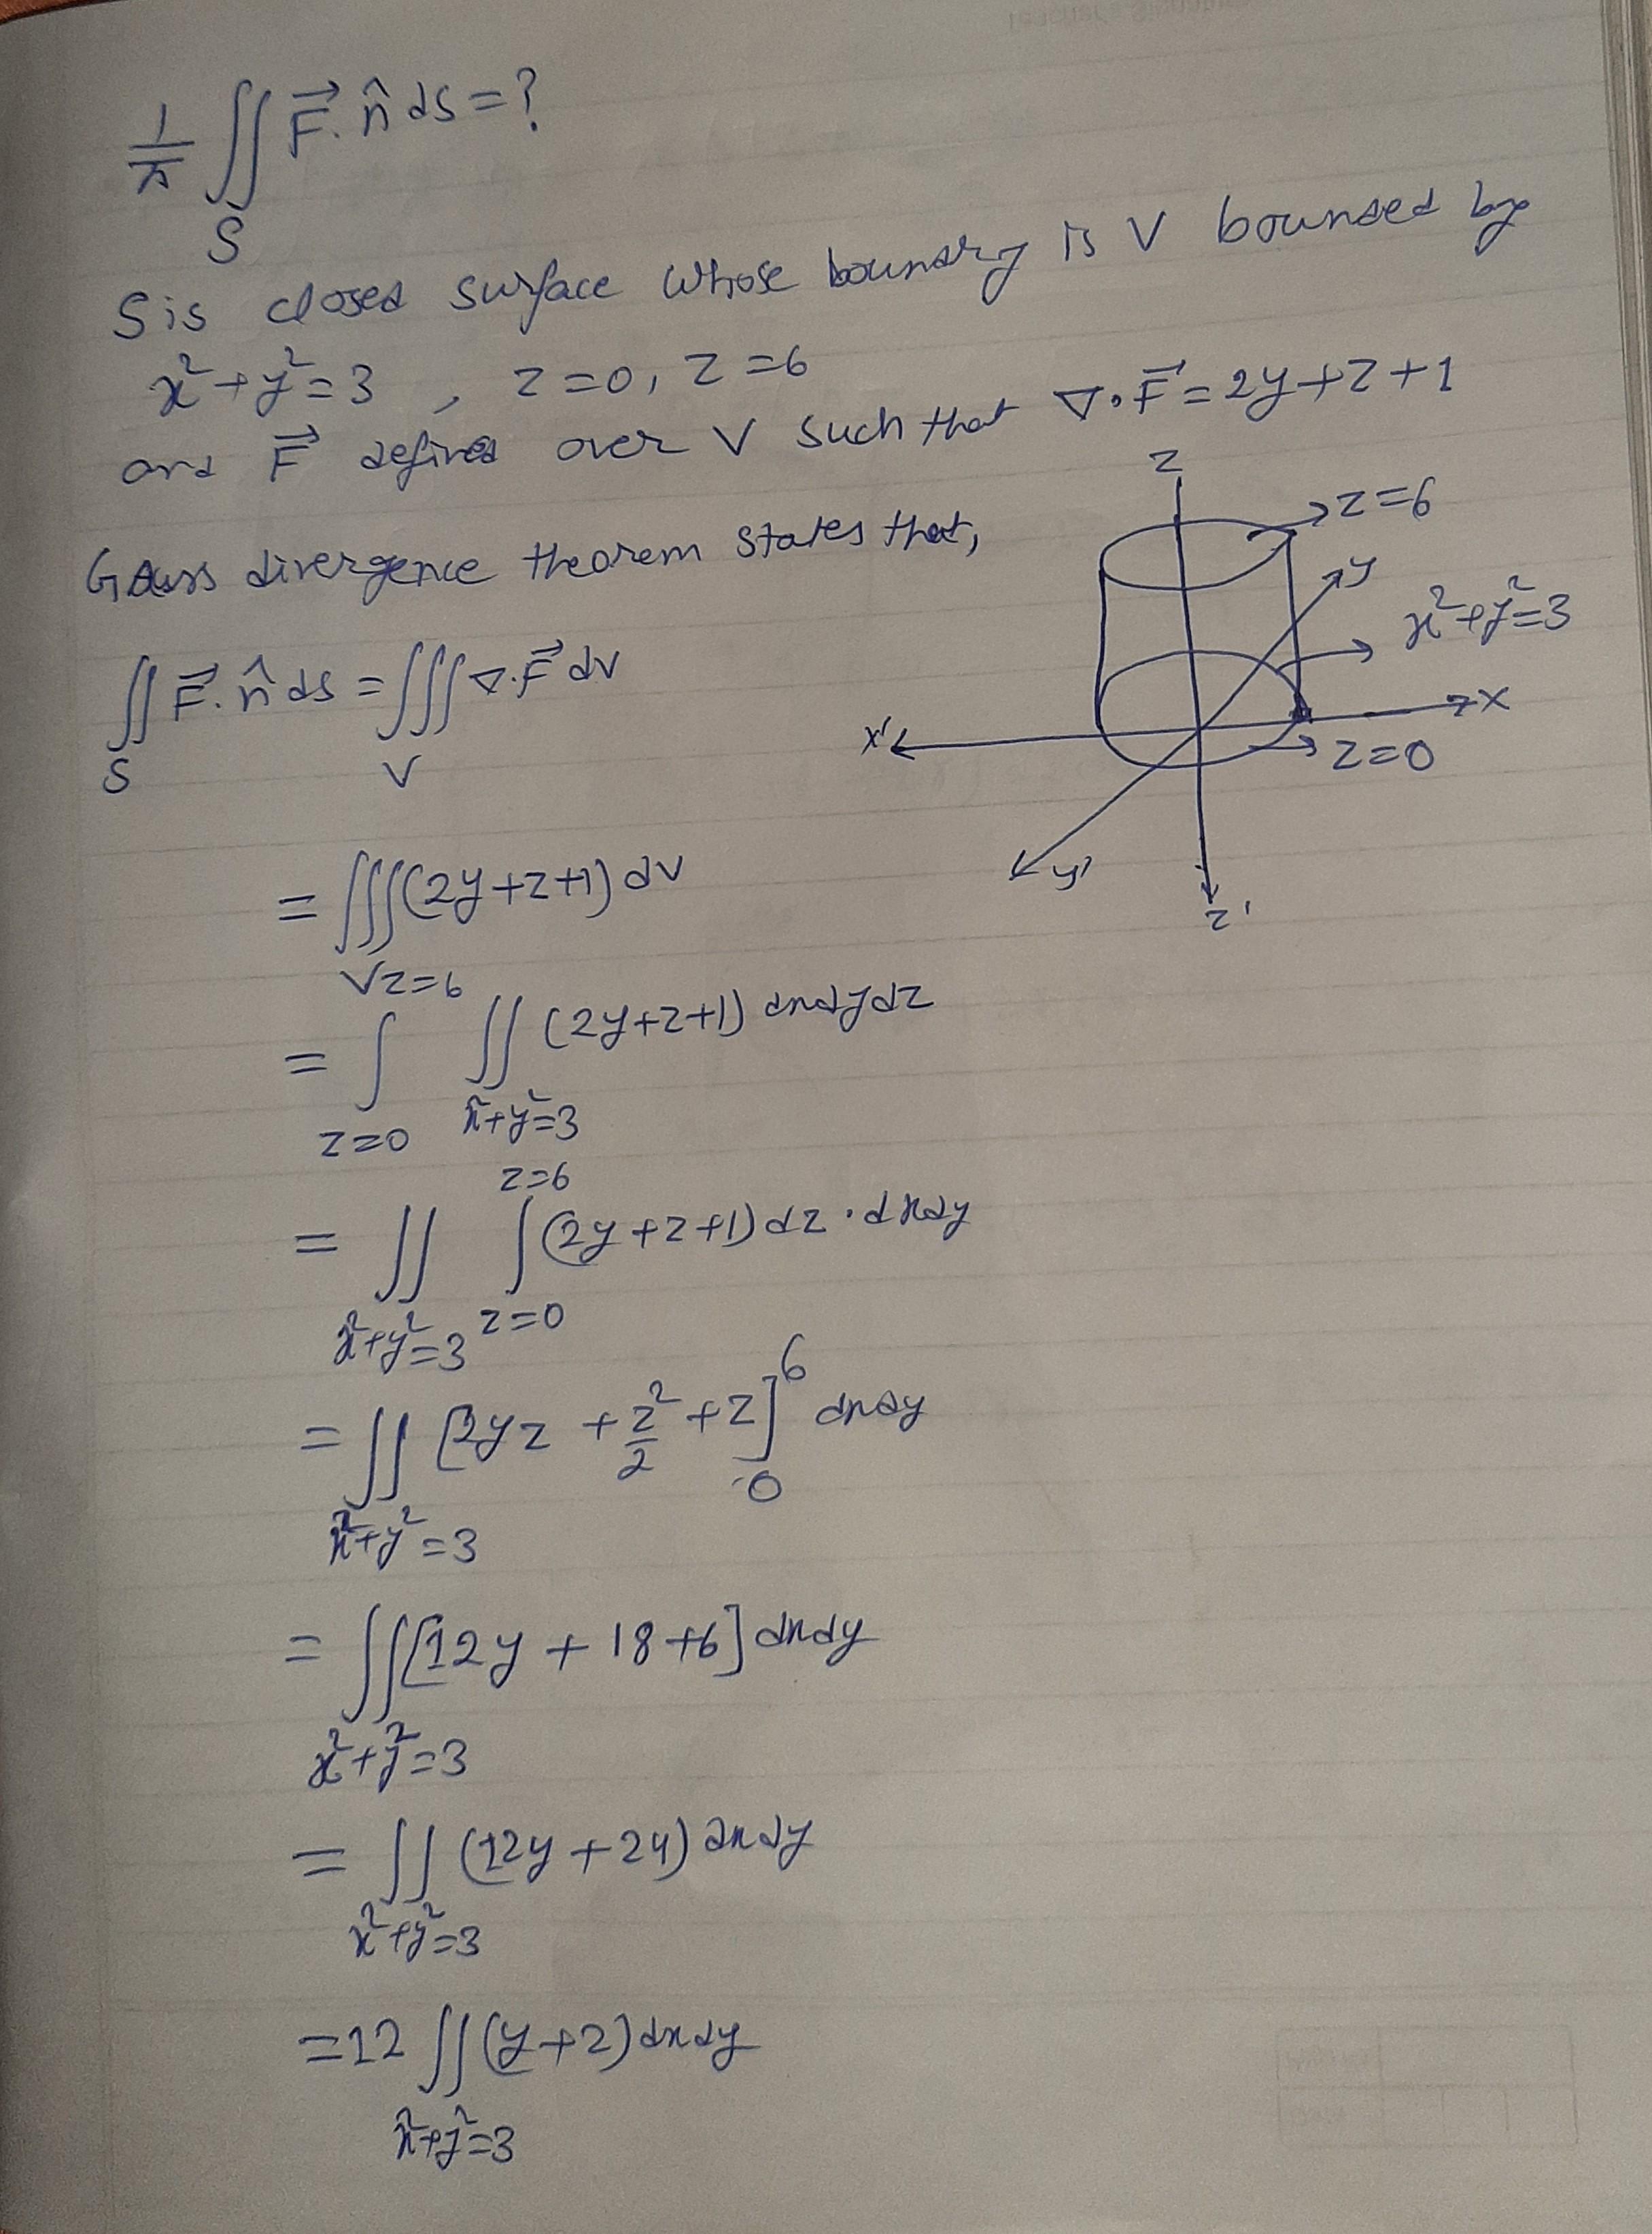 1/π ∬_S F⃗. n̂ ds = ?
S is closed surface whose boundary is V bounded by
x²+y²=3 , z=0, z=6
and F⃗ defined over V such that ∇.F⃗ = 2y+z+1
Gauss divergence theorem states that,
∬_S F⃗. n̂ ds = ∭_V ∇.F⃗ dv
z
z=6
y
x²+y²=3
x
x'
z=0
y'
z'
= ∭_V (2y+z+1) dv
= ∫_{z=0}^{z=6} ∬_{x²+y²=3} (2y+z+1) dxdydz
= ∬_{x²+y²=3} ∫_{z=0}^{z=6} (2y+z+1) dz . dxdy
= ∬_{x²+y²=3} [2yz + z²/2 + z]_0^6 dxdy
= ∬_{x²+y²=3} [12y + 18 + 6] dxdy
= ∬_{x²+y²=3} (12y + 24) dxdy
= 12 ∬_{x²+y²=3} (y+2) dxdy